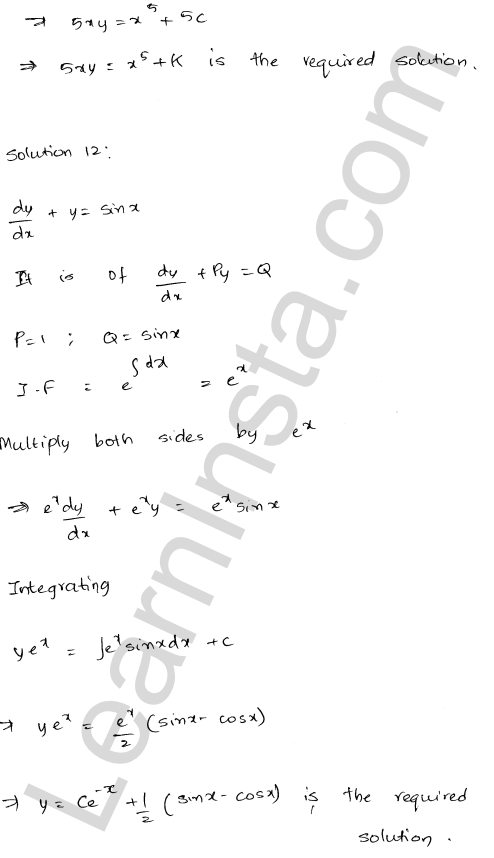 ⇒ 5xy = x⁵ + 5C
⇒ 5xy = x⁵ + K is the required solution.
Solution 12:
dy/dx + y = sinx
It is of dy/dx + Py = Q
P=1 ; Q = sinx
I.F = e^∫dx = e^x
Multiply both sides by e^x
⇒ e^x dy/dx + e^x y = e^x sinx
Integrating
ye^x = ∫e^x sinx dx + c
⇒ ye^x = e^x/2 (sinx - cosx)
⇒ y = Ce^-x + 1/2 (sinx - cosx) is the required
solution.
LearnInsta.com